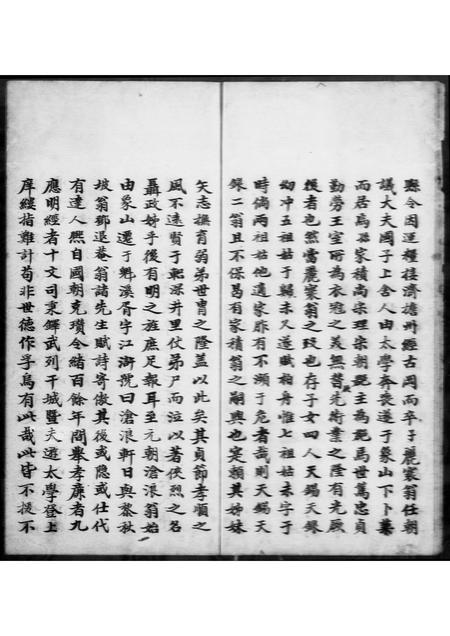 縣令因運糧接濟儋州經古岡而卒子麗寰翁任朝
議大夫國子上舍人由太學奔喪遂于象山下卜築
而居焉孤家積尚宋理宗朝死王為死焉世篤忠貞
勤勞王室所為衣冠之美無替先衛業之隆有光厥
後者也然當麗寰翁之歿也存子女四人天錫天錄
幼冲五祖姑于歸未又遂賦柏舟惟七祖姑未字于
時倘兩祖姑他適家胙有不瀕于危者哉則天錫天
錄二翁且不保曷有家積翁之嗣興也寔賴其姊妹
矢志撫育弱弟世冑之隆蓋以此矣其貞節孝順之
風不遠賢于軹深井里仗弟尸而泣以著俠烈之名
聶政姊乎後有明之旌庶足報耳至元朝滄浪翁始
由象山遷于斜溪胥宇江滸號曰滄浪軒日與黎秋
坡翁鄧退菴翁諸先生賦詩寄傲其後或隱或仕代
有達人熙自國朝克瓊今緒百餘年間舉孝廉者九
應明經者十文司東鐸武列干城暨夫遊太學登上
庠縷指難計苟非世德作孚烏有此哉此皆不援不